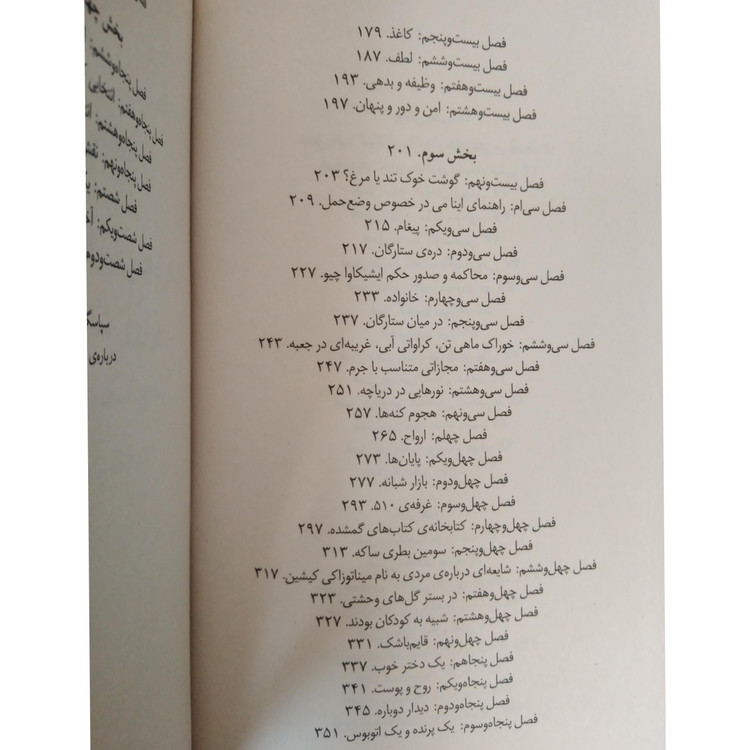 فصل بیست‌وپنجم: کاغذ. ۱۷۹
فصل بیست‌وششم: لطف. ۱۸۷
فصل بیست‌وهفتم: وظیفه و بدهی. ۱۹۳
فصل بیست‌وهشتم: امن و دور و پنهان. ۱۹۷
بخش سوم. ۲۰۱
فصل بیست‌ونهم: گوشت خوک تند یا مرغ؟ ۲۰۳
فصل سی‌ام: راهنمای اینا می در خصوص وضع‌حمل. ۲۰۹
فصل سی‌ویکم: پیغام. ۲۱۵
فصل سی‌ودوم: دره‌ی ستارگان. ۲۱۷
فصل سی‌وسوم: محاکمه و صدور حکم ایشیکاوا چیو. ۲۲۷
فصل سی‌وچهارم: خانواده. ۲۳۳
فصل سی‌وپنجم: در میان ستارگان. ۲۳۷
فصل سی‌وششم: خوراک ماهی تن، کراواتی آبی، غریبه‌ای در جعبه. ۲۴۳
فصل سی‌وهفتم: مجازاتی متناسب با جرم. ۲۴۷
فصل سی‌وهشتم: نورهایی در دریاچه. ۲۵۱
فصل سی‌ونهم: هجوم کنه‌ها. ۲۵۷
فصل چهلم: ارواح. ۲۶۵
فصل چهل‌ویکم: پایان‌ها. ۲۷۳
فصل چهل‌ودوم: بازار شبانه. ۲۷۷
فصل چهل‌وسوم: غرفه‌ی ۵۱۰. ۲۹۳
فصل چهل‌وچهارم: کتابخانه‌ی کتاب‌های گمشده. ۲۹۷
فصل چهل‌وپنجم: سومین بطری ساکه. ۳۱۳
فصل چهل‌وششم: شایعه‌ای درباره‌ی مردی به نام میناتوزاکی کیشین. ۳۱۷
فصل چهل‌وهفتم: در بستر گل‌های وحشتی. ۳۲۳
فصل چهل‌وهشتم: شبیه به کودکان بودند. ۳۲۷
فصل چهل‌ونهم: قایم‌باشک. ۳۳۱
فصل پنجاهم: یک دختر خوب. ۳۳۷
فصل پنجاه‌ویکم: روح و پوست. ۳۴۱
فصل پنجاه‌ودوم: دیدار دوباره. ۳۴۵
فصل پنجاه‌وسوم: یک پرنده و یک اتوبوس. ۳۵۱
بخش
فصل پنجاه‌وششم:
فصل پنجاه‌وهفتم: انتخابی
فصل پنجاه‌وهشتم:
فصل پنجاه‌ونهم:
فصل شصتم:
فصل شصت‌ویکم:
فصل شصت‌ودوم
درباره‌ی